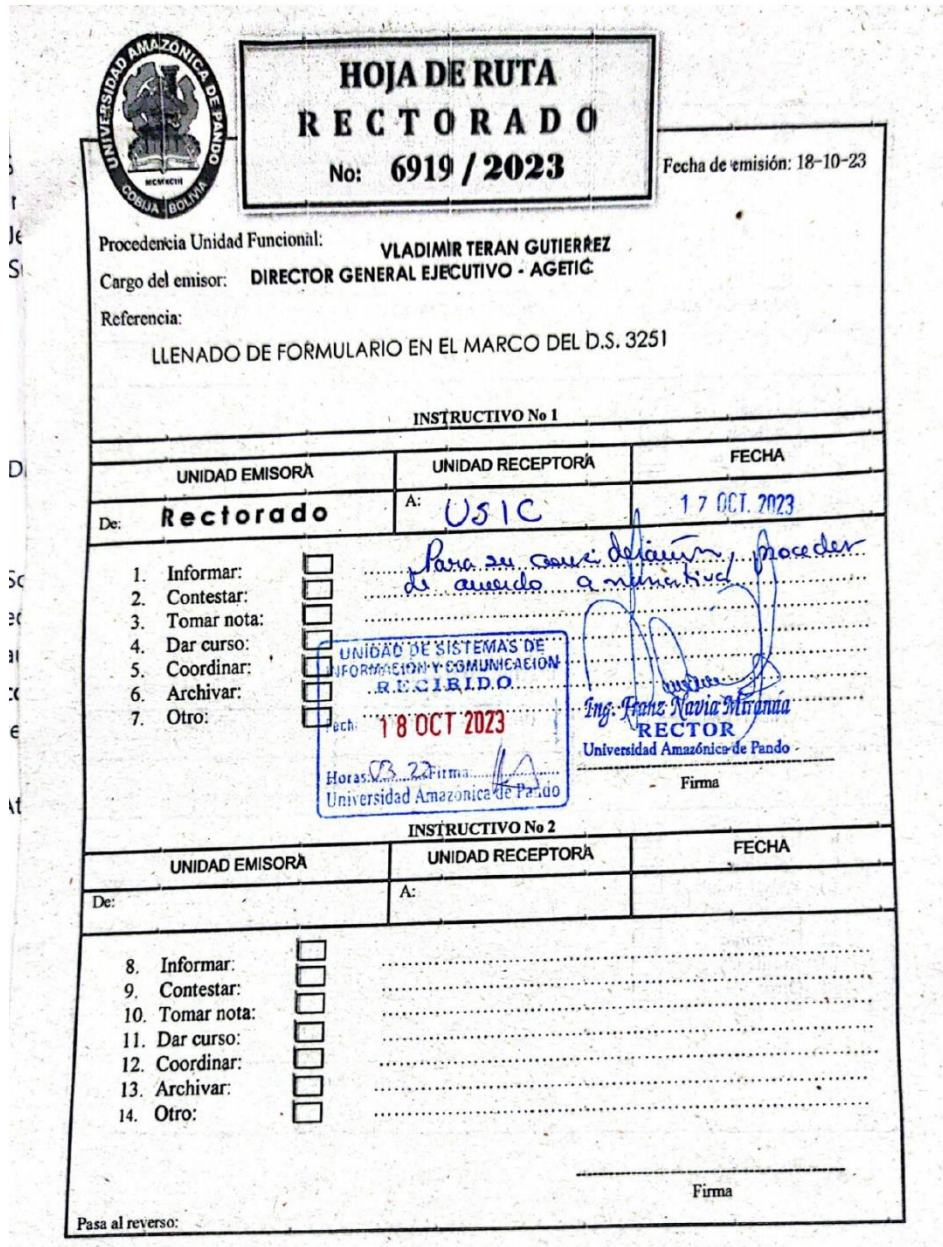 UNIVERSIDAD AMAZÓNICA DE PANDO
MCMXCIII
COBIJA BOLIVIA
HOJA DE RUTA
RECTORADO
No: 6919 / 2023
Fecha de emisión: 18-10-23
Procedencia Unidad Funcional: VLADIMIR TERAN GUTIERREZ
Cargo del emisor: DIRECTOR GENERAL EJECUTIVO - AGETIC
Referencia:
LLENADO DE FORMULARIO EN EL MARCO DEL D.S. 3251
INSTRUCTIVO No 1
UNIDAD EMISORA UNIDAD RECEPTORA FECHA
De: Rectorado A: USIC 17 OCT. 2023
Para su consideración, proceder
de acuerdo a normativa
1. Informar:
2. Contestar:
3. Tomar nota:
4. Dar curso:
5. Coordinar:
6. Archivar:
7. Otro:
UNIDAD DE SISTEMAS DE
INFORMACIÓN Y COMUNICACIÓN
RECIBIDO
Fech: 18 OCT 2023
Horas: 03 22 Firma
Universidad Amazónica de Pando
Ing. Franz Navia Miranda
RECTOR
Universidad Amazónica de Pando
Firma
INSTRUCTIVO No 2
UNIDAD EMISORA UNIDAD RECEPTORA FECHA
De: A:
8. Informar:
9. Contestar:
10. Tomar nota:
11. Dar curso:
12. Coordinar:
13. Archivar:
14. Otro:
Firma
Pasa al reverso: